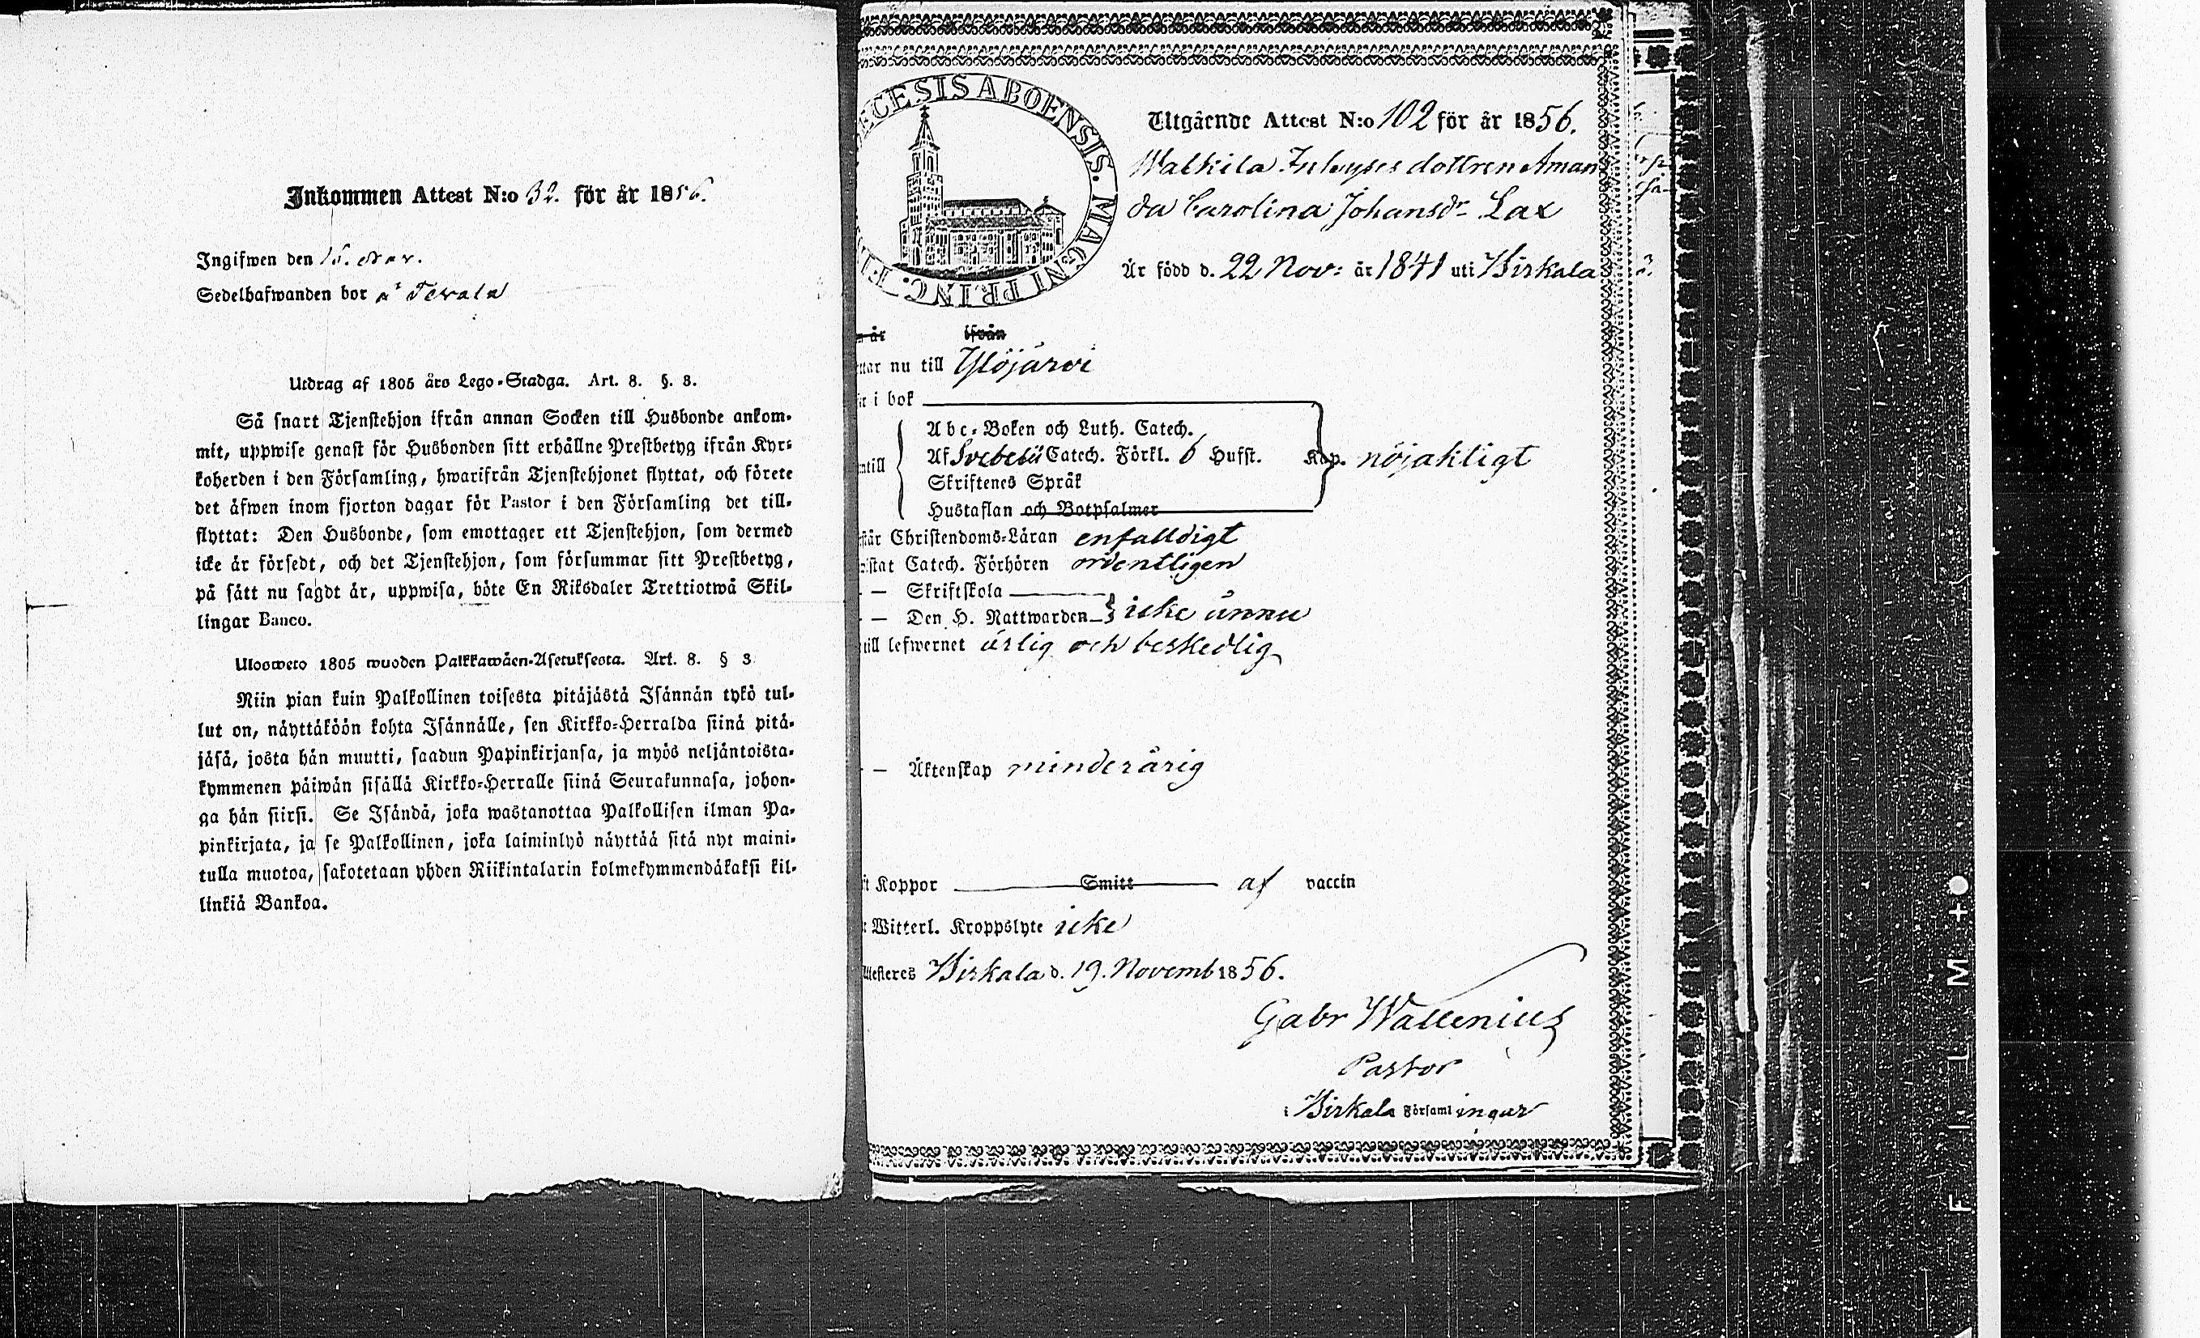 Inkommen Attest N:o 32. för år 1856.
Ingifwen den
Sedelhafwanden bor
Utdrag af 1805 års Lego-Stadga. Art. 8. §. 3.
Så snart Tjenstehjon ifrån annan Socken till Husbonde ankom-
mit, uppwise genast för Husbonden sitt erhållne Prestbetyg ifrån Kyr-
koherden i den Församling, hwarifrån Tjenstehjonet flyttat, och förete
det äfwen inom fjorton dagar för Pastor i den Församling det till-
flyttat: Den Husbonde, som emottager ett Tjenstehjon, som dermed
icke är försedt, och det Tjenstehjon, som försummar sitt Prestbetyg,
på sätt nu sagdt är, uppwisa, böte En Riksdaler Trettiotwå Skil-
lingar Banco.
Ulosweto 1805 wuoden Palkkawäen-Asetuksesta. Art. 8. § 3
Niin pian kuin Palkollinen toisesta pitäjästä Isännän tykö tul-
lut on, näyttäköön kohta Isännälle, sen Kirkko-Herralda siinä pitä-
jäsä, josta hän muutti, saadun Papinkirjansa, ja myös neljäntoista-
kymmenen päiwän sisällä Kirkko-Herralle siinä Seurakunnasa, johon-
ga hän siirsi. Se Isändä, joka wastanottaa Palkollisen ilman Pa-
pinkirjata, ja se Palkollinen, joka laiminlyö näyttää sitä nyt maini-
tulla muotoa, sakotetaan yhden Riikintalarin kolmekymmendäkaksi kil-
linkiä Bankoa.
ECESIS ABOENSIS. MAGNI PRINC. FI
Utgående Attest N:o 102 för år 1856.
Walkila dottren Aman
da Carolina Johansdr Lax
Är född d. 22 Nov: år 1841 uti Birkala
år ifrån
nu till Ylöjärvi
i bok
Abc-Boken och Luth. Catech.
Af Svebelii Catech. Förkl. 6 Hufst. Kap. nöjakligt
Skriftenes Språk
Hustaflan och Botpsalmer
Christendoms-Läran enfalldigt
Catech. Förhören ordentligen
— Skriftskola
— Den H. Nattwarden icke ännu
till lefwernet ärlig och beskedlig
— Äktenskap minderårig
Koppor Smitt af vaccin
Witterl. Kroppslyte icke
Birkala d. 19. Novemb 1856.
Gabr Wallenius
Pastor
i Birkala Församlingar
FILM